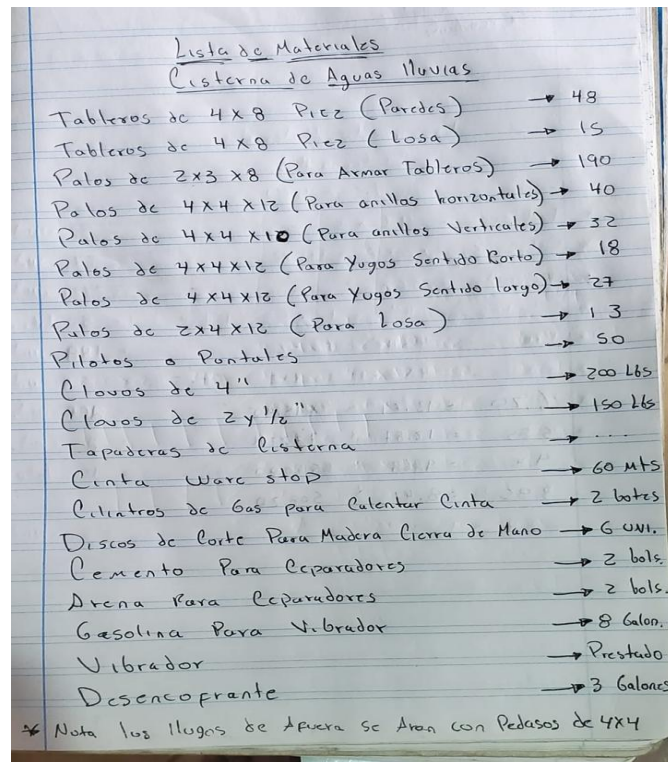 Lista de Materiales
Cisterna de Aguas lluvias
Tableros de 4 x 8 Piez (Paredes) → 48
Tableros de 4 x 8 Piez (Losa) → 15
Palos de 2x3 x8 (Para Armar Tableros) → 190
Palos de 4x4x12 (Para anillos horizontales) → 40
Palos de 4x4x10 (Para anillos Verticales) → 32
Palos de 4x4x12 (Para Yugos Sentido Corto) → 18
Palos de 4x4x12 (Para Yugos Sentido largo) → 27
Palos de 2x4x12 (Para Losa) → 13
Pilotos o Puntales → 50
Clavos de 4" → 200 Lbs
Clavos de 2 y 1/2" → 150 Lbs
Tapaderas de Cisterna → ....
Cinta ware stop → 60 Mts
Cilintros de Gas para Calentar Cinta → 2 botes
Discos de Corte Para Madera Cierra de Mano → 6 UNI.
Cemento Para Ceparadores → 2 bols.
Arena Para Ceparadores → 2 bols.
Gasolina Para Vibrador → 8 Galon.
Vibrador → Prestado
Desencofrante → 3 Galones
* Nota los llugos de Afuera Se Aran con Pedasos de 4x4